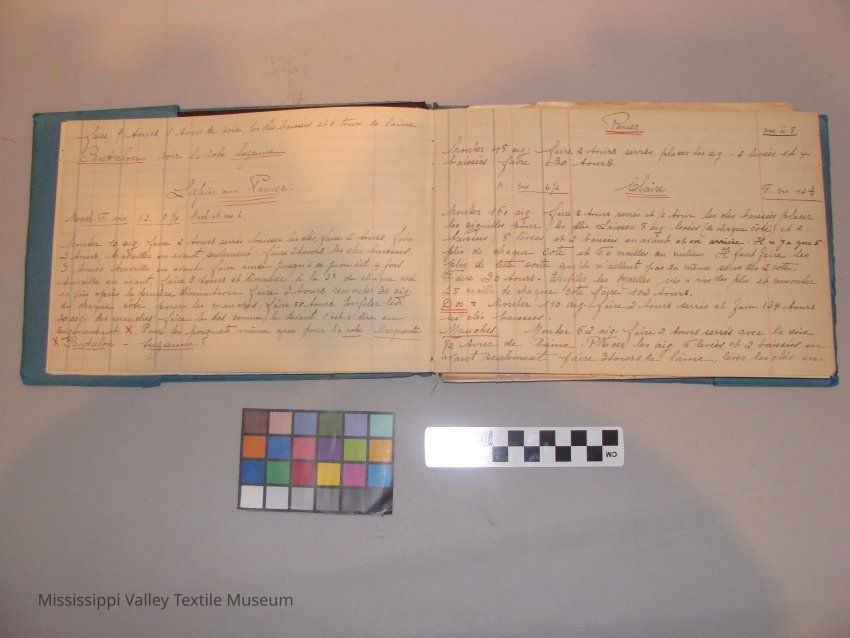 faire 9 tours 1 tours de soie les clés baissées et 4 tours de laine.
Pantalon voir la robe Suzanne
Lapin ou Panier:
Mach. F vis 13. Mach. vis 6
Monter 70 aig. faire 2 tours serrés baisser les clés, faire 2 tours, faire
2 tours, travailler en avant seulement, faire 2 tours les clés baissées
3 tours travailler en avant faire ainsi jusqu'à ce qu'on ait 4 fois
travailler en avant, faire 3 tours et diminuer à la 3e de chaque côté
10 fois après la première diminution faire 2 tours remonter 30 aig.
de chaque côté pour les manches, faire 30 tours. Enfiler les
30 aig. des manches faire le dos comme le devant c'est à dire en
augmentant X Pour les poignets même que pour la robe Marguerite
X Pantalon - Suzanne
Panier vis à 8
Monter 45 aig: faire 2 tours serrés, placer les aig - 2 levées et 4
baissées faire 30 tours
vis 6½ Claire F vis 12½
Monter 160 aig faire 2 tours serrés et ½ tour les clés baissées placer
les aiguilles pour les plis. Laisser 8 aig levées (de chaque côté) et 2
baissées 8 levées et 2 baissées en avant et en arrière. Il n'y a que 5
plis de chaque côté et 60 mailles au milieu Il faut faire les
plis de telle sorte qu'ils n'aillent pas du même sens des 2 côtés.
Faire 30 tours. Enfiler les mailles vis à vis des plis et remonter
25 mailles de chaque côté faire 102 tours.
Dos = Monter 110 aig faire 2 tours serrés et faire 134 tours
les clés baissées.
Manches Monter 62 aig. faire 2 tours serrés avec la soie
½ tour de laine. Placer les aig. 6 levées et 2 baissées en
avant seulement faire 3 tours de laine, lever les clés en
CM
Mississippi Valley Textile Museum